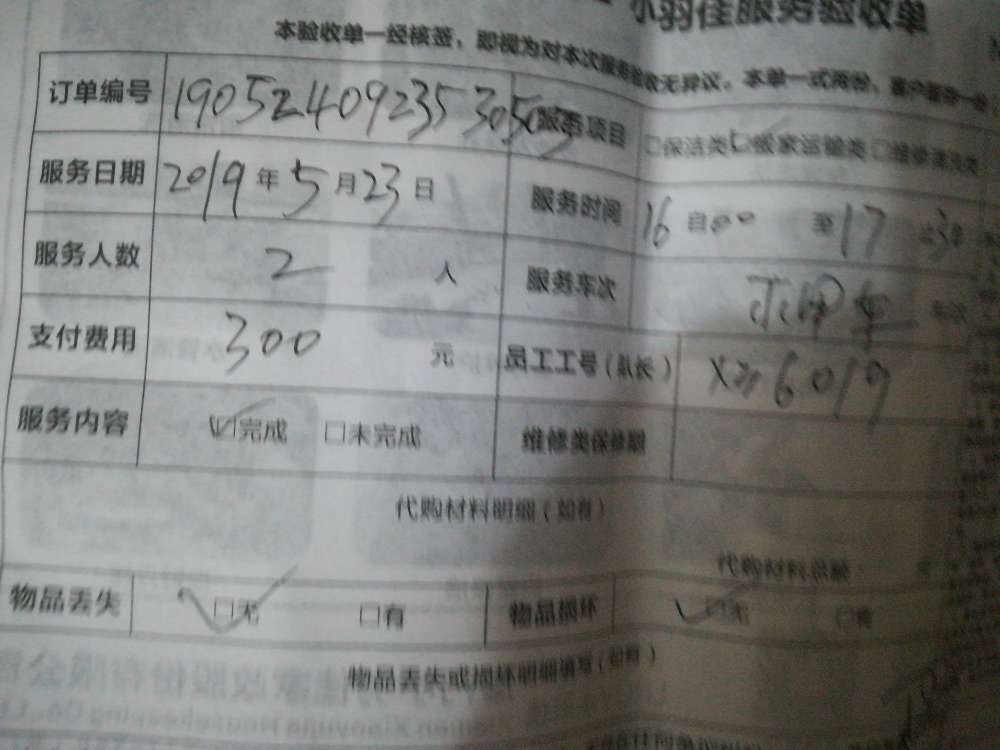 小羽佳服务验收单
本验收单一经核签，即视为对本次服务验收无异议。本单一式两份，客户留存一份
订单编号 19052409235305053 服务项目 □保洁类 ☑搬家运输类 □维修清洗类
服务日期 2019年5月23日 服务时间 16 00 至17 30
服务人数 2 人 服务车次 车次
支付费用 300 元 员工工号（队长） 6019
服务内容 ☑完成 □未完成 维修类保修期
代购材料明细（如有）
代购材料总额
物品丢失 ☑无 □有 物品损坏 ☑无 □有
物品丢失或损坏明细填写（如有）